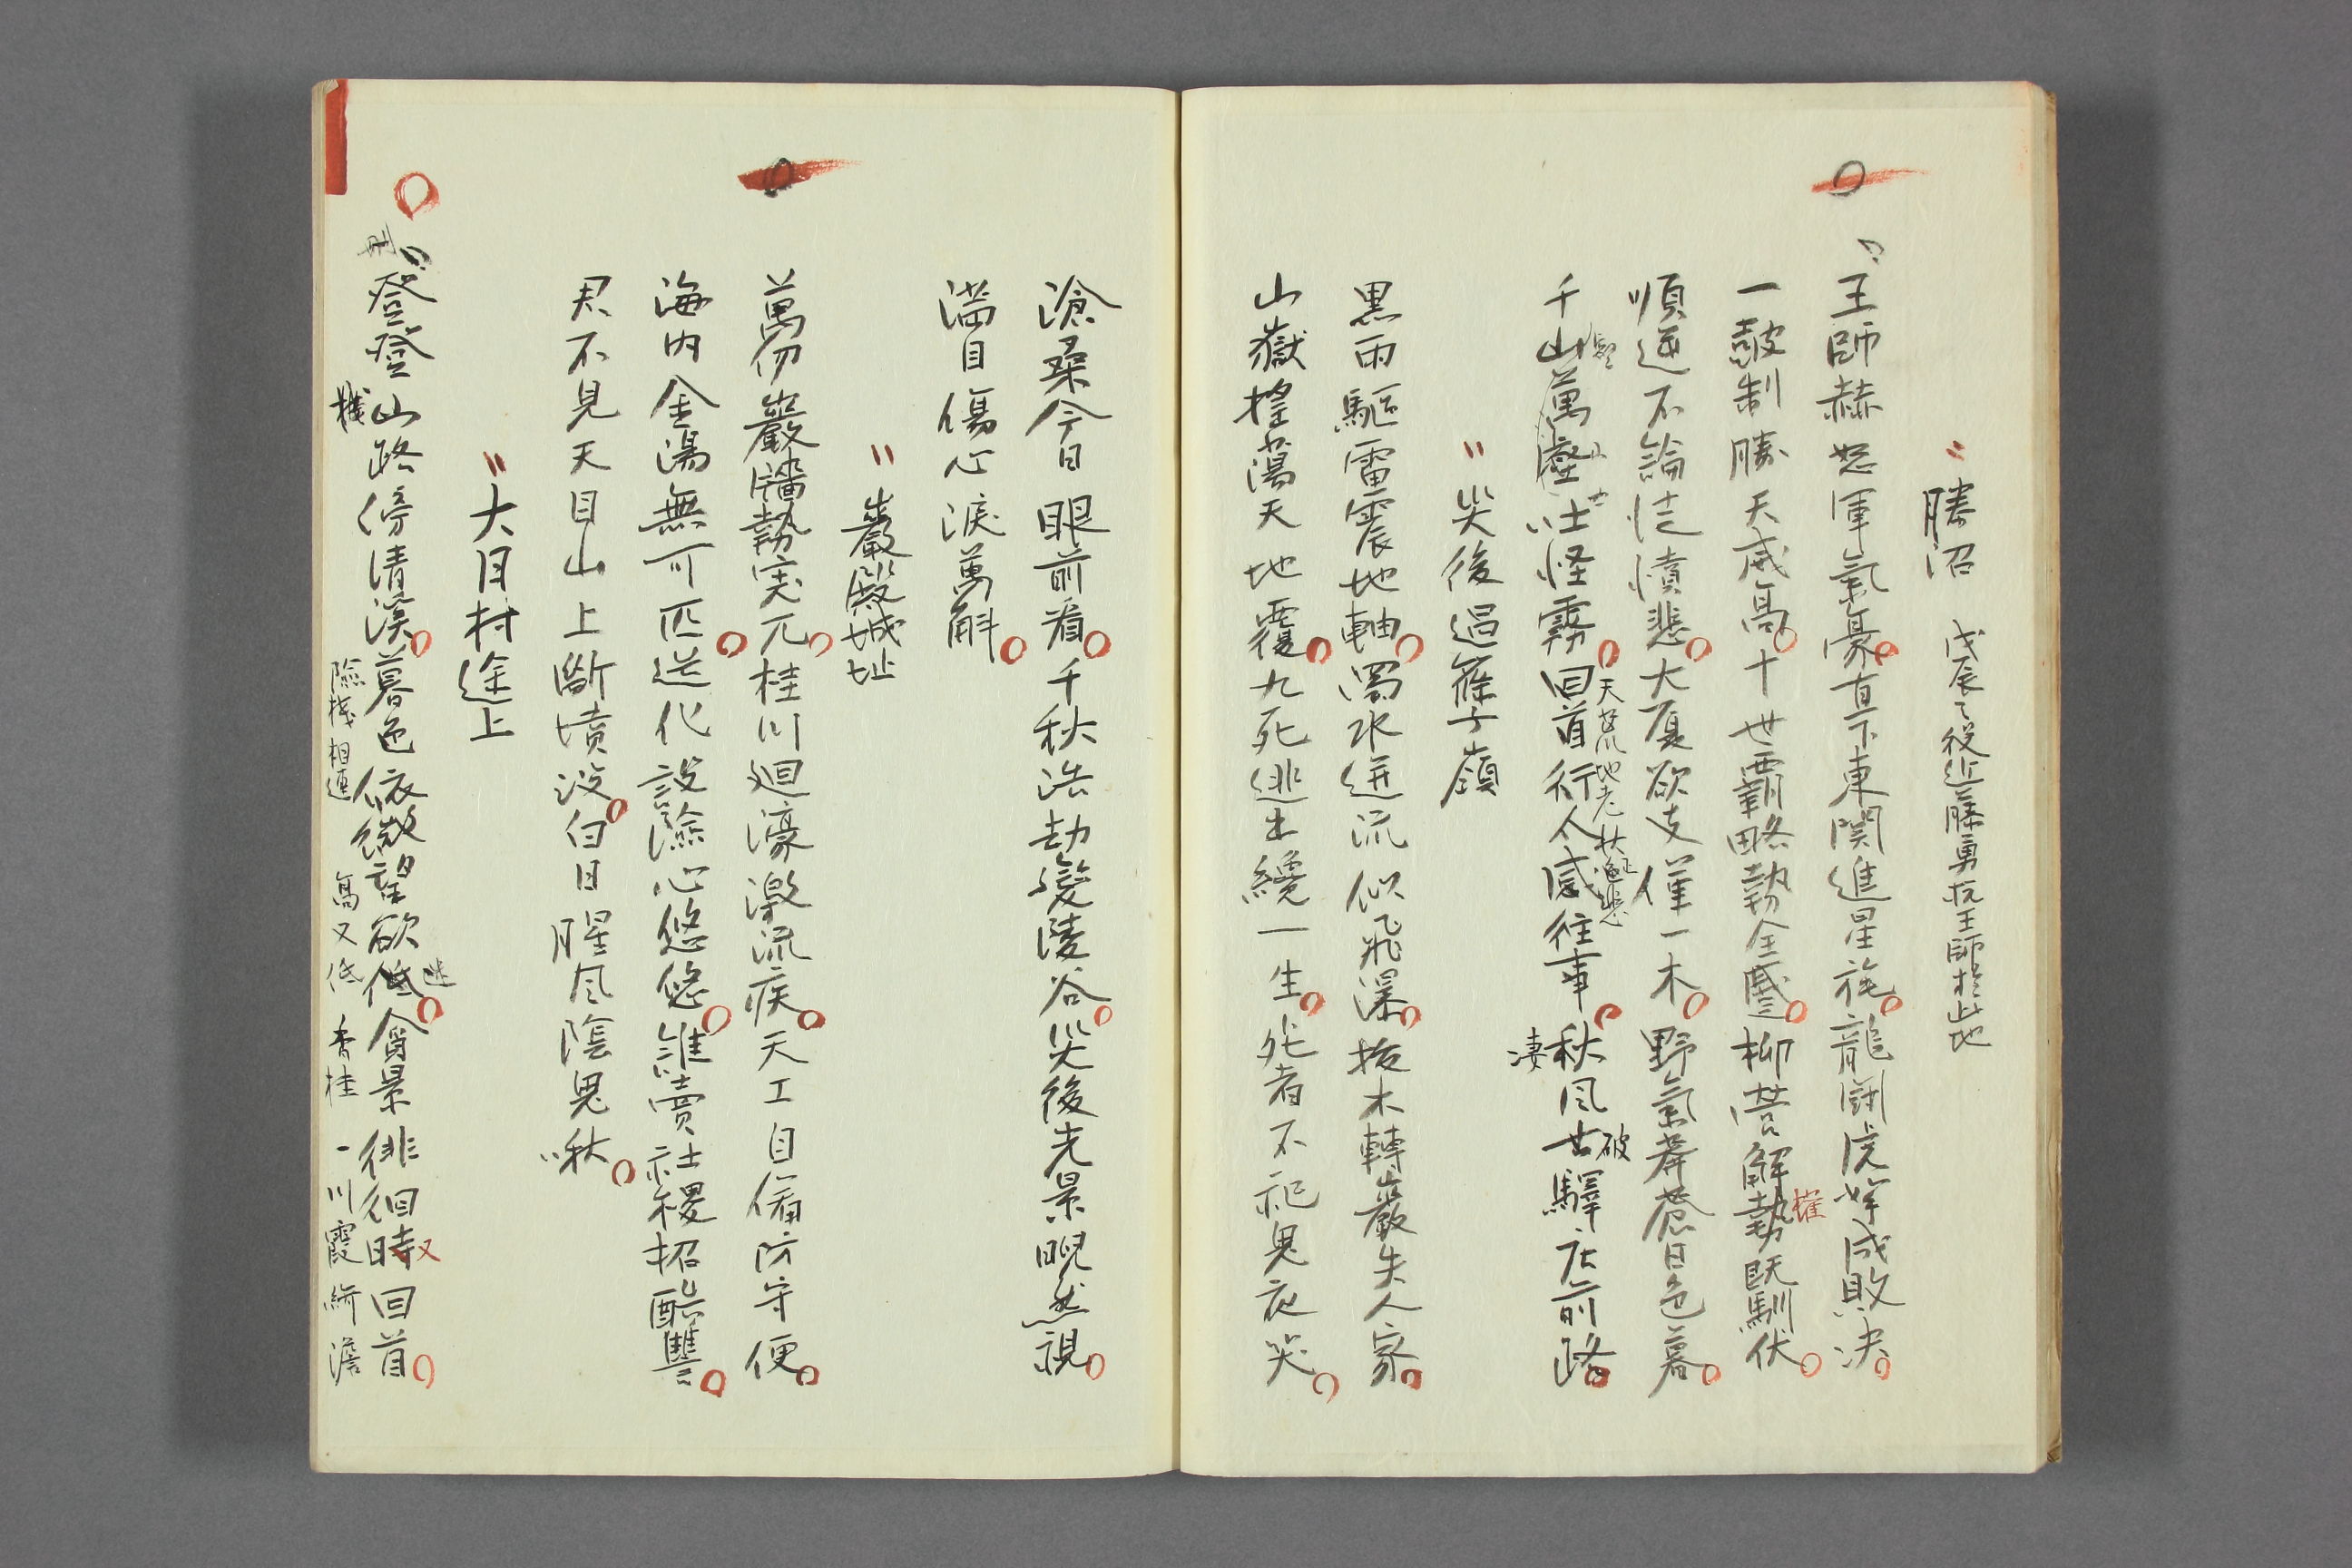 勝沼 戊辰之役近藤勇抗王師於此地
王師赫怒軍氣豪直下東関進星旄龍闘虎 成敗決
一皷制勝天威高十世覇略勢全 柳営解勢既馴伏
權
順逆不論 憤悲大厦欲支僅一木野氣 蒼日色暮
千山萬壑 怪霧回首行人感往事秋風古驛店前路
天荒地老
破
凄
災後過篠子嶺
黒雨駆雷震地軸濁水迸流似飛瀑抜木轉巖失人家
山嶽 蕩天地覆九死逃出纔一生死者不祀鬼夜哭
滄桑今日眼前看千秋浩劫變陵谷災後光景 然視
満目傷心涙萬斛
巖殿城址
萬仞巖牆勢突兀桂川廻濠激流疾天工自備防守便
海内金湯無可匹造化設險心悠悠誰賣社稷招酷
君不見天目山上断墳没白日腥風陰鬼啾〻
大月村途上
刪
登登山路傍清溪暮色依微望欲低貪景徘徊時回首
棧
迷
又
險棧相連 高又低 香桂 一川霞綺澹